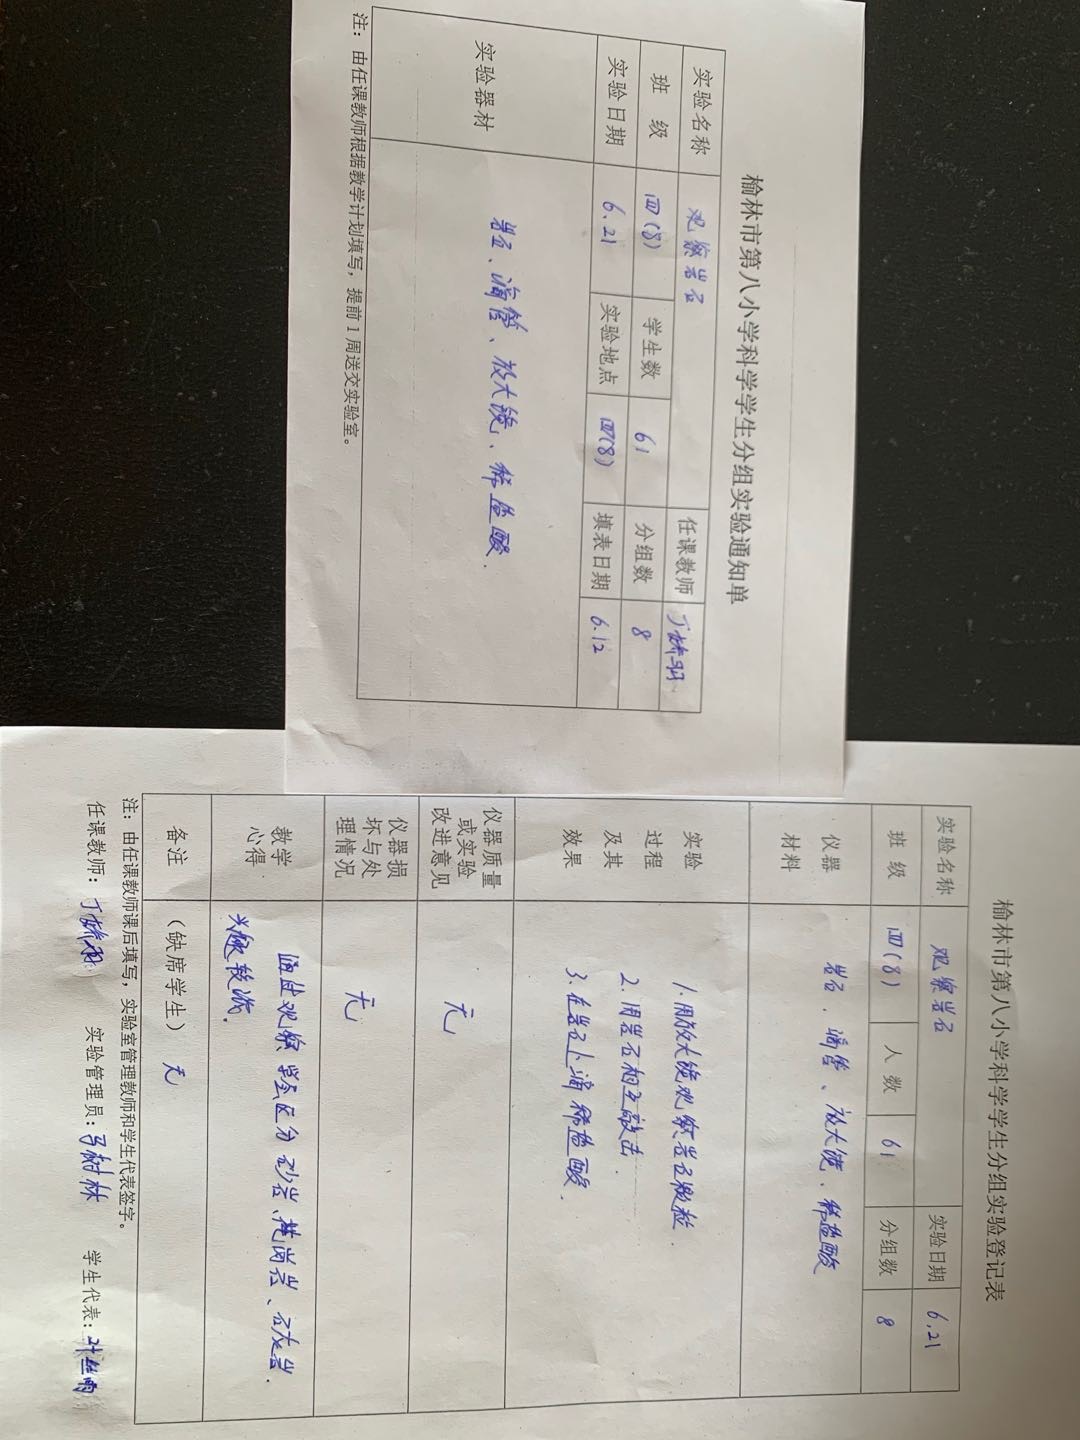 榆林市第八小学科学学生分组实验通知单
实验名称 观察岩石 任课教师
班 级 四(8) 学生数 61 分组数 8
实验日期 6.21 实验地点 四(8) 填表日期 6.12
实验器材 岩石、滴管、放大镜、稀盐酸.
注：由任课教师根据教学计划填写，提前1周送交实验室。
榆林市第八小学科学学生分组实验登记表
实验名称 观察岩石 实验日期 6.21
班 级 四(8) 人 数 61 分组数 8
仪器
材料
岩石、滴管、放大镜、稀盐酸
实验
过程
及其
效果
1.用放大镜观察岩石颗粒.
2.用岩石相互敲击.
3.在岩石上滴稀盐酸.
仪器质量
或实验
改进意见
无
仪器损
坏与处
理情况
无
教学
心得
通过观察学会区分砂岩、花岗岩、石灰岩.
兴趣较浓.
备注 （缺席学生） 无
注：由任课教师课后填写，实验室管理教师和学生代表签字。
任课教师： 实验管理员：马树林 学生代表：